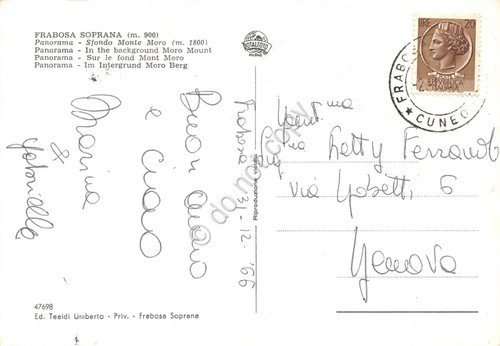 FRABOSA SOPRANA (m. 900)
Panorama - Sfondo Monte Moro (m. 1800)
Panorama - In the background Moro Mount
Panorama - Sur le fond Mont Mero
Panorama - Im Intergrund Moro Berg
Frabosa 31-12-66
Buon Anno
e Ciao
Marina
&
Gabriella
Riproduzione vietata
LIRE 20
FRABOS
CUNEO
Gent.ma
Letty Ferrando
via Gobetti 6
Genova
do not copy
47698
Ed. Tealdi Umberto - Priv. - Frabosa Soprana